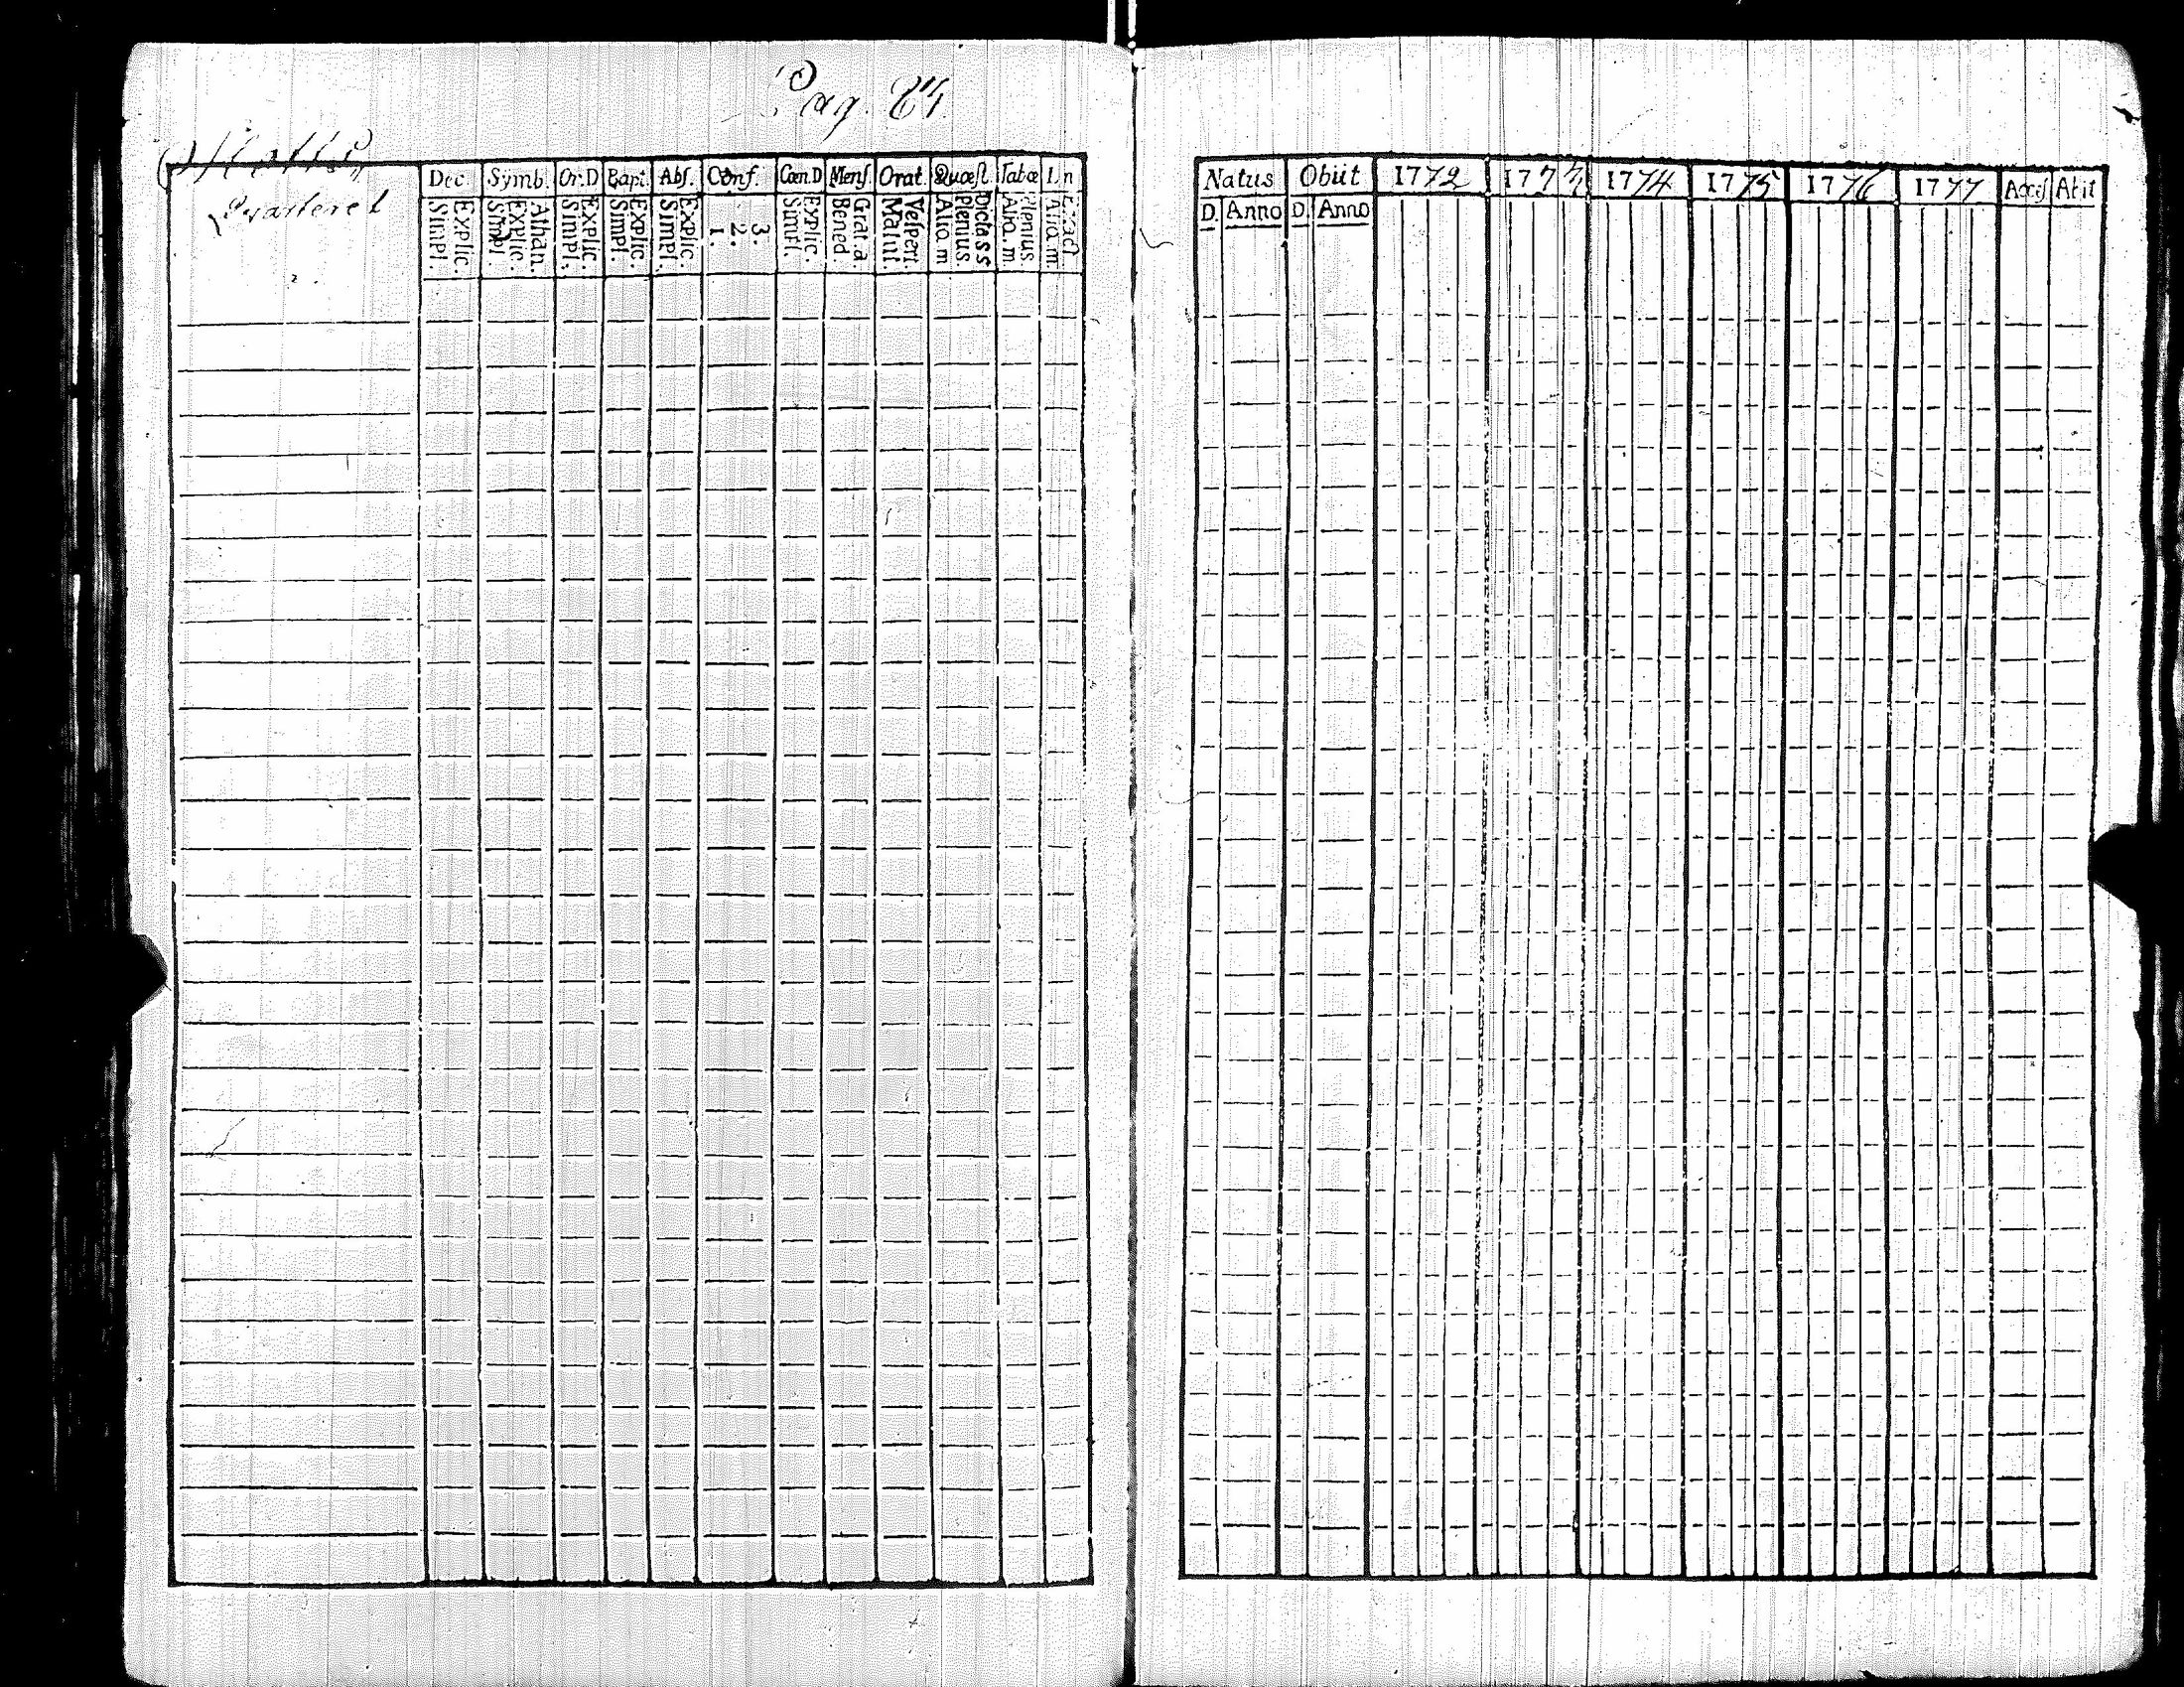 Pag. 84
Qvarteret
Dec. Symb. Or:D Bapt. Abs. Conf. Cœn.D Mens. Orat. Quæst. Tabæ I. n
Explic. Simpl. Athan. Explic. Simpl. Explic. Simpl. Explic. Simpl. Explic. Simpl. 3. 2. 1. Explic. Simpl. Grat. a. Bened. Vespert. Matut. Dicta ss Plenius. Aliq. m Plenius. Aliq. m. Exact Aliq. m.
Natus Obiit 1772 1773 1774 1775 1776 1777 Acces Abit
D. Anno D. Anno